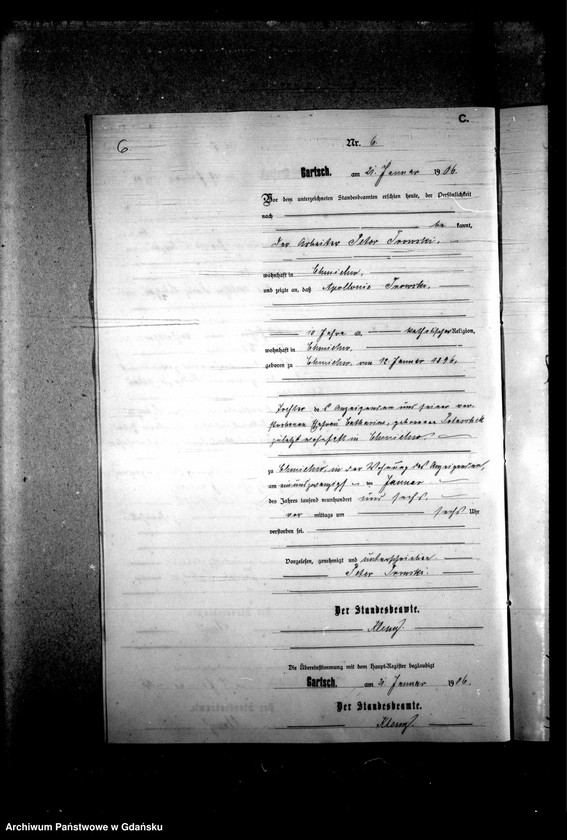 C.
6
Nr. 6
Gartsch. am 21. Januar 1906.
Vor dem unterzeichneten Standesbeamten erschien heute, der Persönlichkeit
nach
be kannt,
der Arbeiter Peter
wohnhaft in Chmielno,
und zeigte an, daß Apollonia
10 Jahre a. katholischer Religion,
wohnhaft in Chmielno,
geboren zu Chmielno, am 12. Januar 1896,
Tochter des Anzeigenden und seiner ver-
storbenen Ehefrau Catharina, geborenen
zuletzt wohnhaft in Chmielno
zu Chmielno, in der Wohnung des Anzeigenden,
am einundzwanzigsten Januar
des Jahres tausend neunhundert und sechs
vor mittags um sechs Uhr
verstorben sei.
Vorgelesen, genehmigt und unterschrieben
Peter
Der Standesbeamte.
Die Übereinstimmung mit dem Haupt-Register beglaubigt
Gartsch. am 21. Januar 1906.
Der Standesbeamte.
Archiwum Państwowe w Gdańsku